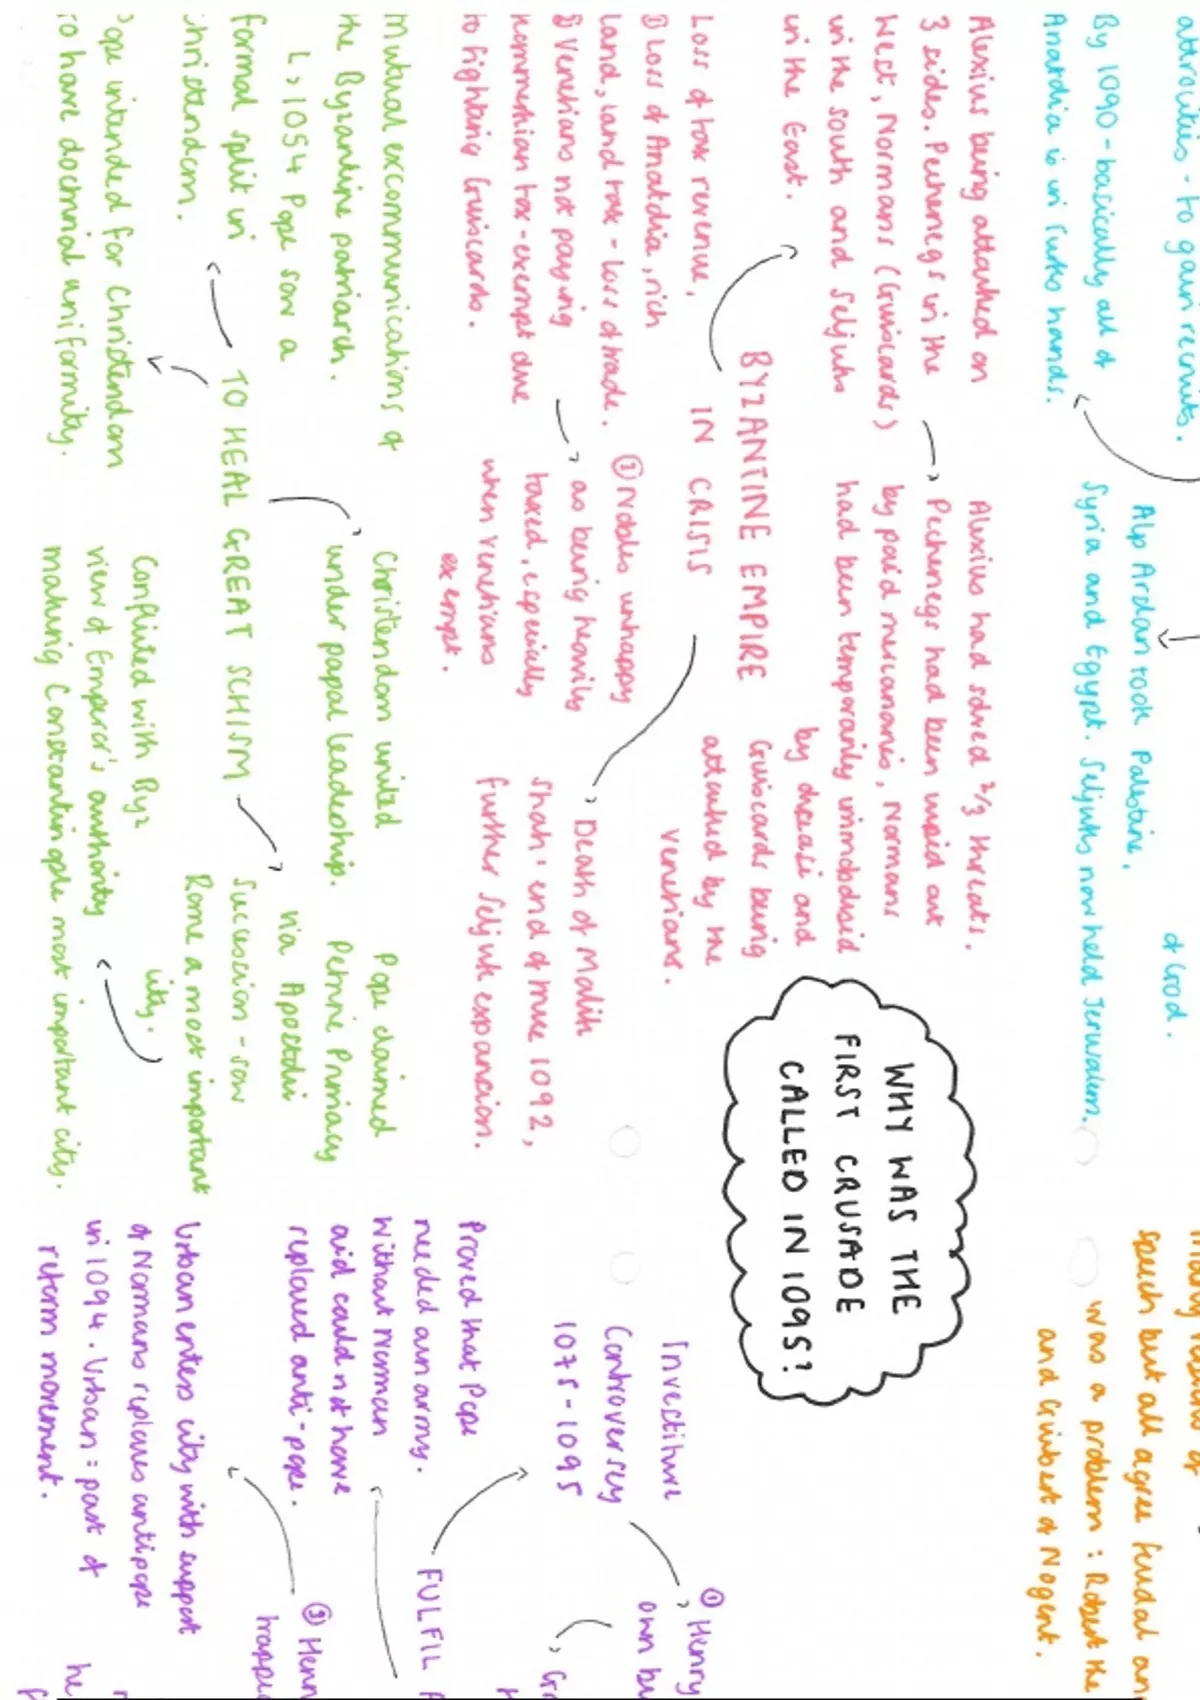 atrocities - to gain recruits.
By 1090 - basically all of
Anatolia is in Turks hands.
Alp Arslan took Palestine,
Syria and Egypt. Seljuks now held Jerusalem.
of God.
speech but all agree feudal
was a problem : Robert the
and Guibert of Nogent.
WHY WAS THE
FIRST CRUSADE
CALLED IN 1095?
Alexius being attacked on
3 sides. Pechenegs in the
West, Normans (Guiscards)
in the south and Seljuks
in the East.
Alexius had solved 2/3 threats.
Pechenegs had been wiped out
by paid mercenaries, Normans
had been temporarily immobilised
by disease and
Guiscards being
attacked by the
Venetians.
BYZANTINE EMPIRE
IN CRISIS
Loss of tax revenue,
① Loss of Anatolia, rich
land, land tax - loss of trade.
② Venetians not paying
tax - exempt due
to fighting Guiscards.
① Nobles unhappy
as being heavily
taxed, especially
when Venetians
exempt.
Death of Malik
Shah: end of true 1092,
further Seljuk expansion.
Mutual excommunications of
the Byzantine patriarch.
↳ 1054 Pope saw a
formal split in
Christendom.
TO HEAL GREAT SCHISM
Pope intended for Christendom
to have doctrinal uniformity.
Christendom united
under papal leadership.
Pope claimed
Petrine Primacy
via Apostolic
Succession - saw
Rome a most important
city.
Conflicted with Byz
view of Emperor's authority
making Constantinople most important city.
Investiture
Controversy
1075 - 1095
Proved that Pope
needed an army.
Without Norman
aid could not have
replaced anti-pope.
FULFIL
① Henry
own
③ Henr
Urban enters city with support
of Normans replaces antipope
in 1094. Urban : part of
reform movement.
he